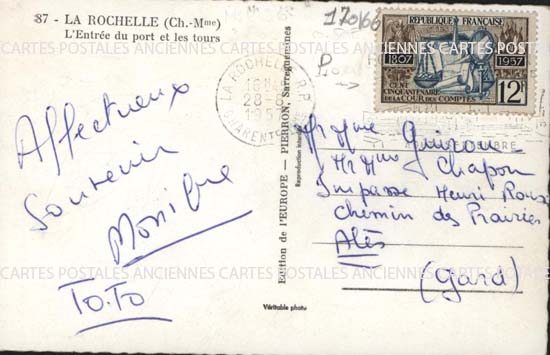 87 - LA ROCHELLE (Ch.-Mme)
L'Entrée du port et les tours
Affectueux
Souvenir
Monique
TO.TO
Edition de l'EUROPE - PIERRON, Sarreguemines
Reproduction interdite
Véritable photo
17066
LA ROCHELLE R.P.
28-8
195
CHARENTE
REPUBLIQUE FRANÇAISE
1807 1957
CENT
CINQUANTENAIRE
DE LA COUR DES COMPTES
12F
Mr Mme
Mr Mme Chapon
Impasse Henri Roux
Chemin des Prairies
Alès
(Gard)
CARTES POSTALES ANCIENNES CARTES POSTALES ANCIENNES CARTES POSTALES ANCIENNES